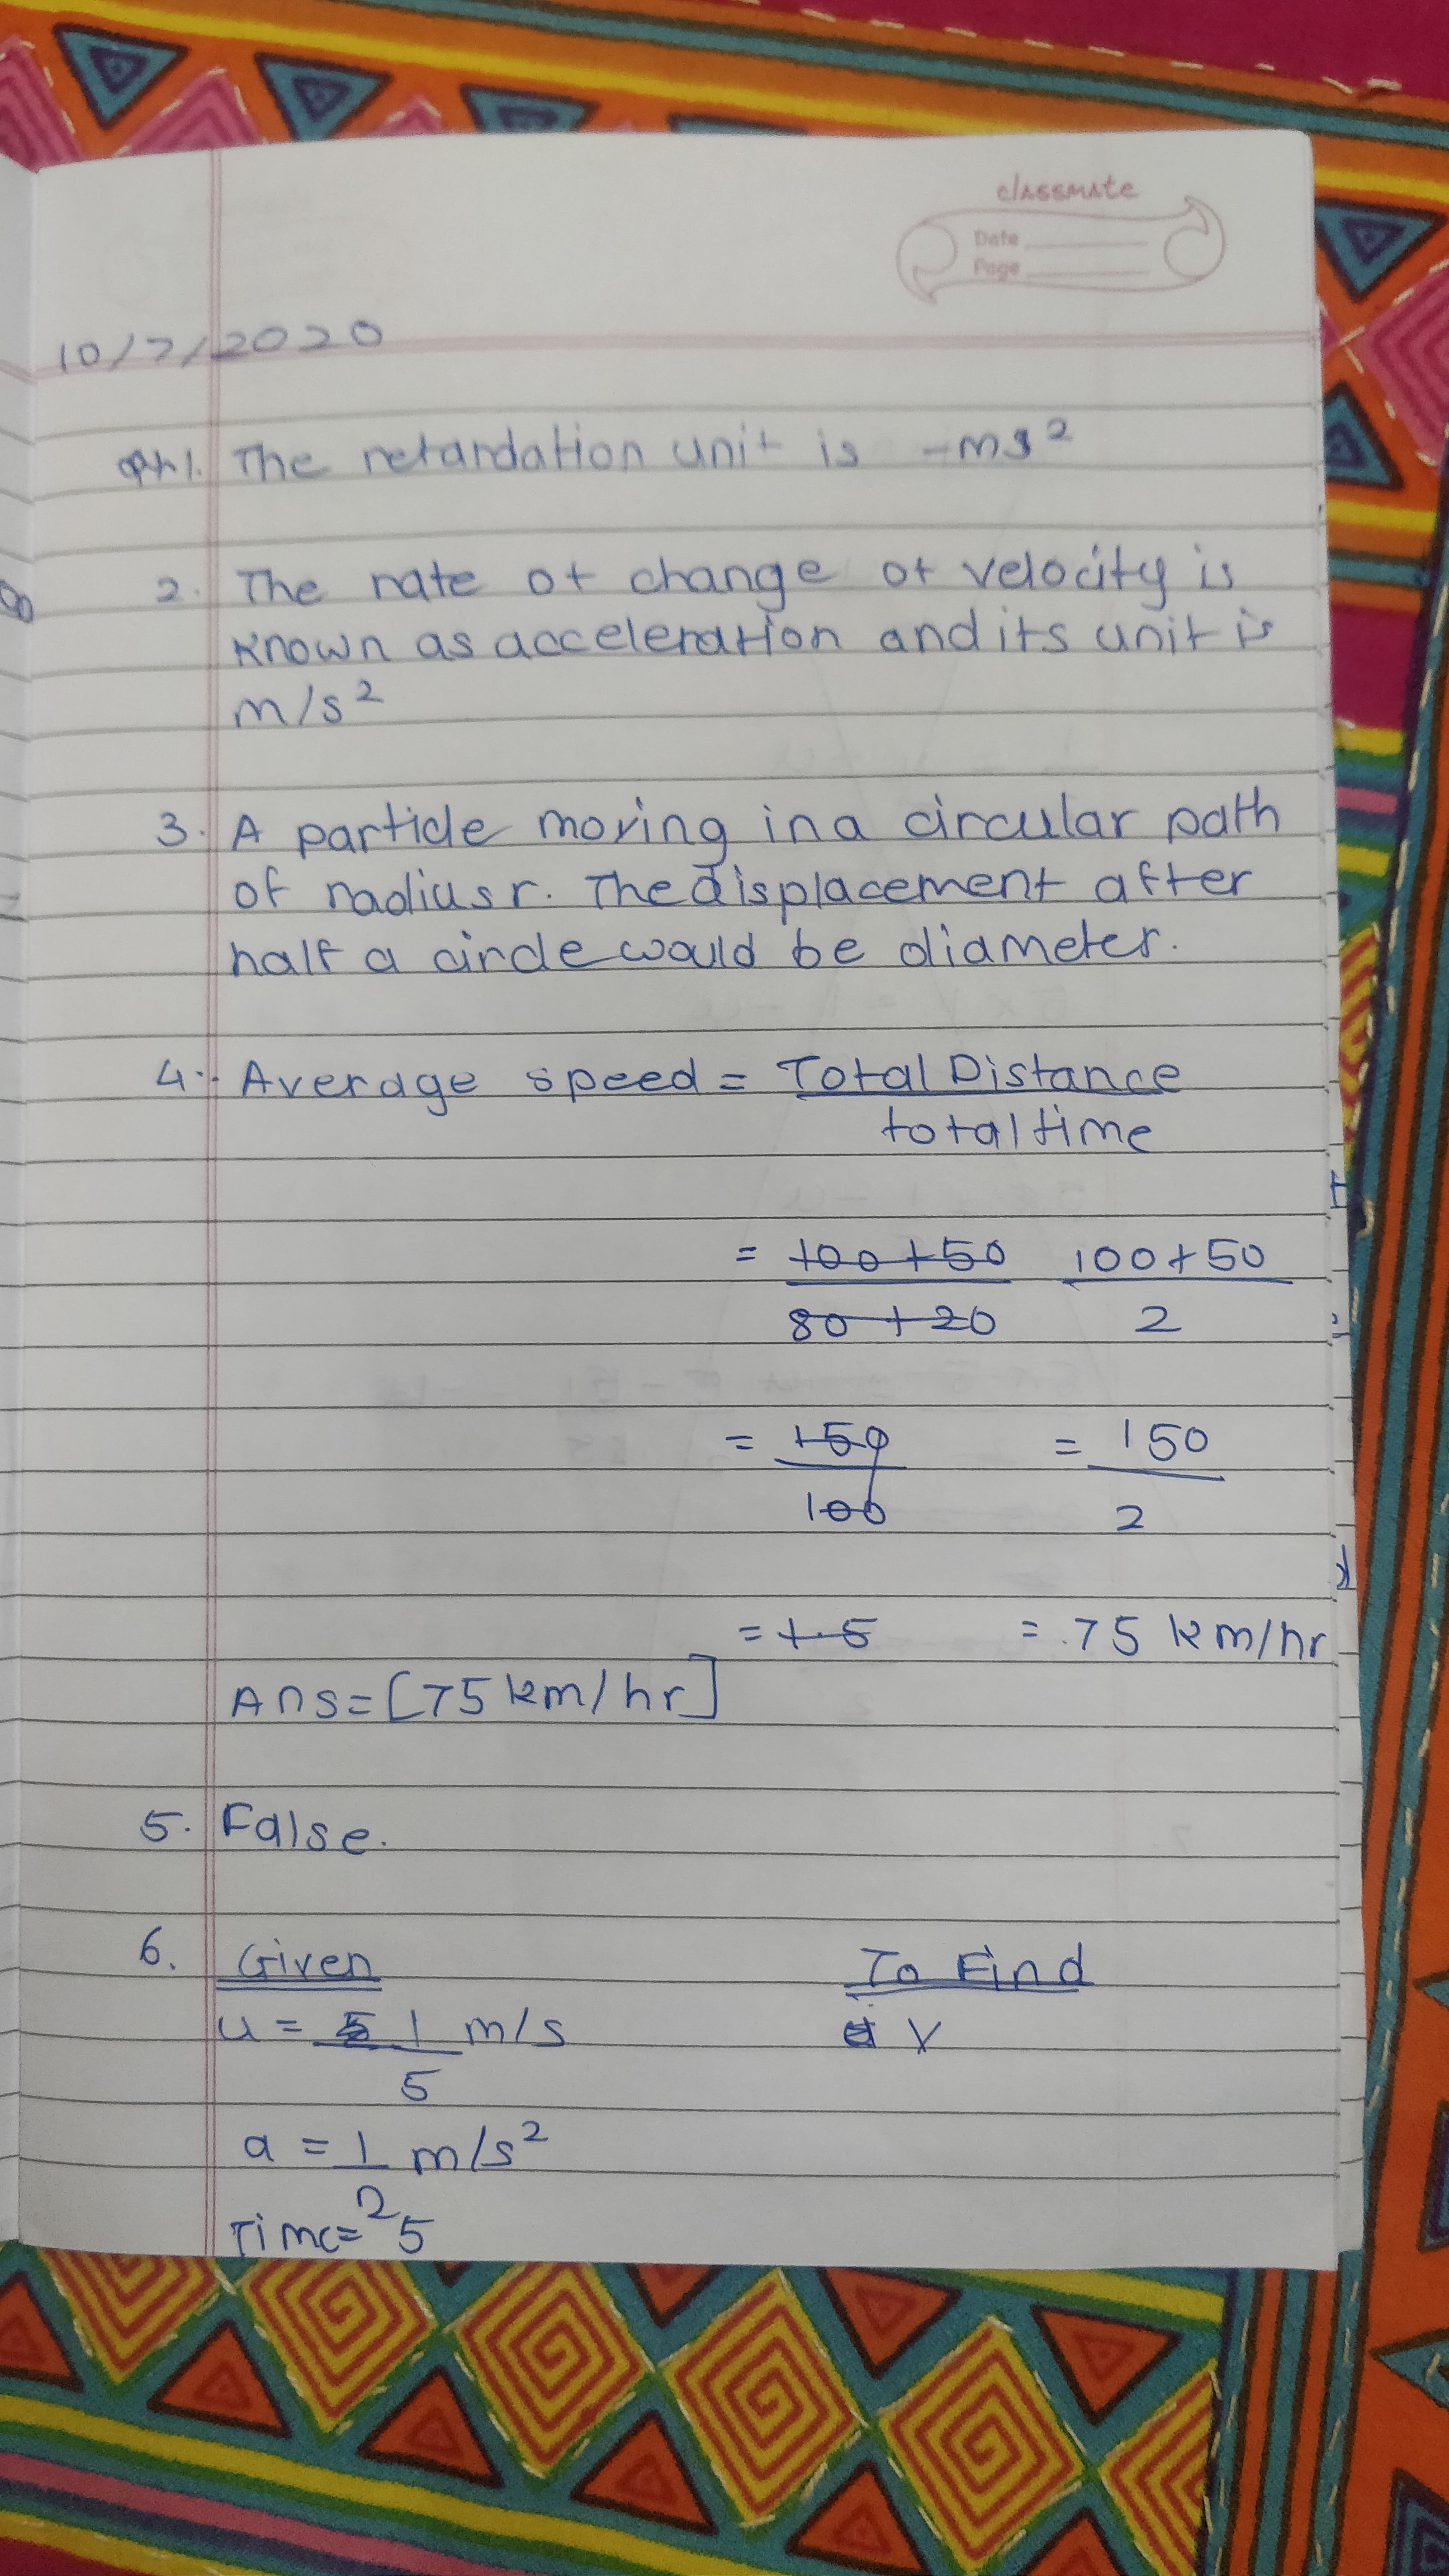 classmate
Date
Page
10/7/2020
1. The retardation unit is -ms²
2. The rate of change of velocity is
known as acceleration and its unit is
m/s²
3. A particle moving in a circular path
of radius r. The displacement after
half a circle would be diameter.
4. Average speed = Total Distance
total time
= 100+50 100+50
80+20 2
= 150 = 150
100 2
= 1.5 = 75 km/hr
Ans = [75 km/hr]
5. False.
6. Given To Find
u = 1 m/s v
5
a = 1 m/s²
2
Time = 5